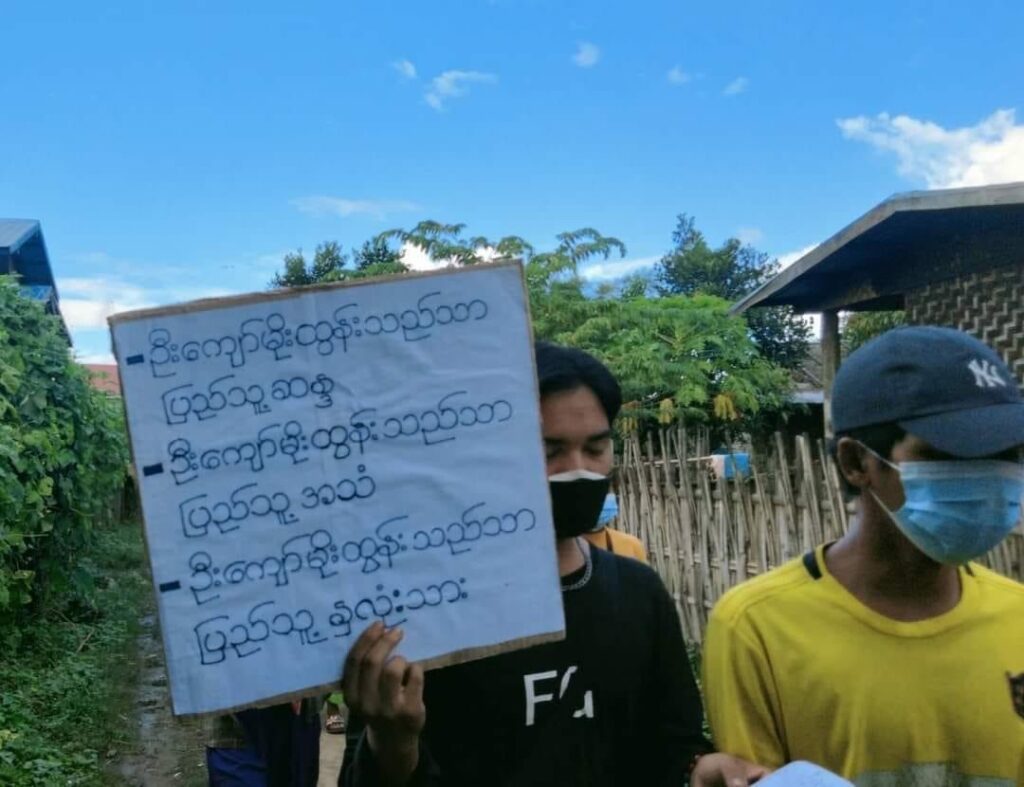 - ဦးကျော်မိုးထွန်းသည်သာ
ပြည်သူ့ဆန္ဒ
- ဦးကျော်မိုးထွန်းသည်သာ
ပြည်သူ့အသံ
- ဦးကျော်မိုးထွန်းသည်သာ
ပြည်သူ့နှလုံးသား
NY